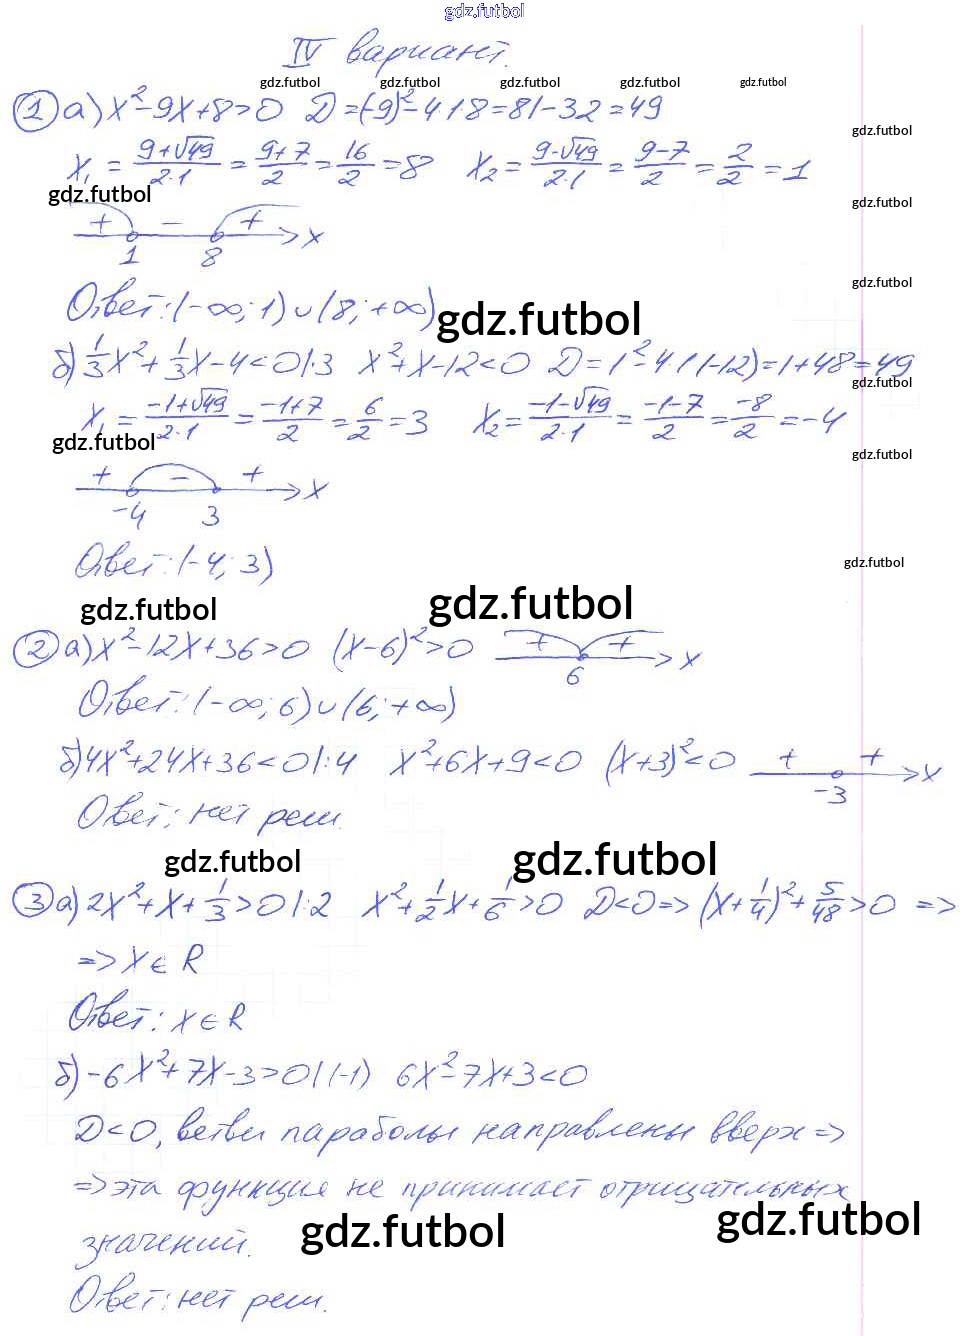 gdz.futbol
IV вариант.
gdz.futbol gdz.futbol gdz.futbol gdz.futbol gdz.futbol
① а) x²-9x+8>0 D=(-9)²-4·1·8=81-32=49
gdz.futbol
x₁ = (9+√49)/(2·1) = (9+7)/2 = 16/2 = 8 x₂ = (9-√49)/(2·1) = (9-7)/2 = 2/2 = 1
gdz.futbol gdz.futbol
+ - + x
1 8
gdz.futbol
Ответ: (-∞; 1)∪(8; +∞)
gdz.futbol
б) 1/3x²+1/3x-4<0|·3 x²+x-12<0 D=1²-4·1·(-12)=1+48=49
gdz.futbol
x₁ = (-1+√49)/(2·1) = (-1+7)/2 = 6/2 = 3 x₂ = (-1-√49)/(2·1) = (-1-7)/2 = -8/2 = -4
gdz.futbol gdz.futbol
+ - + x
-4 3
Ответ: (-4; 3)
gdz.futbol
gdz.futbol gdz.futbol
② а) x²-12x+36>0 (x-6)²>0 + + x
6
Ответ: (-∞; 6)∪(6; +∞)
б) 4x²+24x+36<0|:4 x²+6x+9<0 (x+3)²<0 + + x
-3
Ответ: нет реш.
gdz.futbol gdz.futbol
③ а) 2x²+x+1/3>0|:2 x²+1/2x+1/6>0 D<0=> (x+1/4)²+5/48>0 =>
=> x∈R
Ответ: x∈R
б) -6x²+7x-3>0|(-1) 6x²-7x+3<0
D<0, ветви параболы направлены вверх =>
=> эта функция не принимает отрицательных
gdz.futbol gdz.futbol
значений.
Ответ: нет реш.